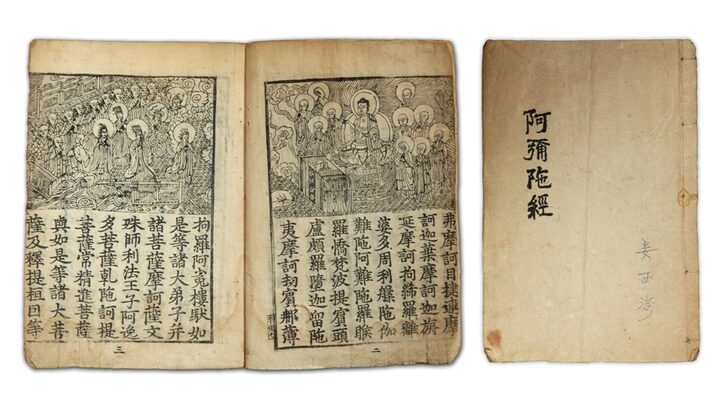 阿彌陁經
弗摩訶目揵連摩
訶迦葉摩訶迦旃
延摩訶拘絺羅離
婆多周利槃陁伽
難陁阿難陁羅睺
羅憍梵波提賓頭
盧頗羅墮迦留陁
夷摩訶劫賓那薄
二
拘羅阿㝹樓馱如
是等諸大弟子并
諸菩薩摩訶薩文
殊師利法王子阿逸
多菩薩乾陁訶提
菩薩常精進菩薩
與如是等諸大菩
薩及釋提桓因等
三